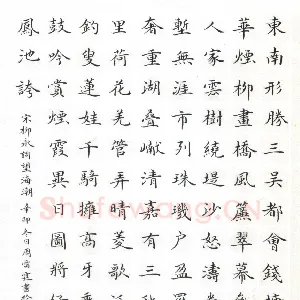 東南形勝三吳都會錢塘
華煙柳畫橋風簾翠幕
人家雲樹繞堤沙怒濤卷
塹無涯市列珠璣戶盈羅
奢重湖疊巘清嘉有三
里荷花羌管弄晴菱歌泛
釣叟蓮娃千騎擁高牙乘
鼓吟賞煙霞異日圖將好
鳳池誇
宋柳永詞望海潮 辛卯冬日周雪寒書
Shufawang.CN